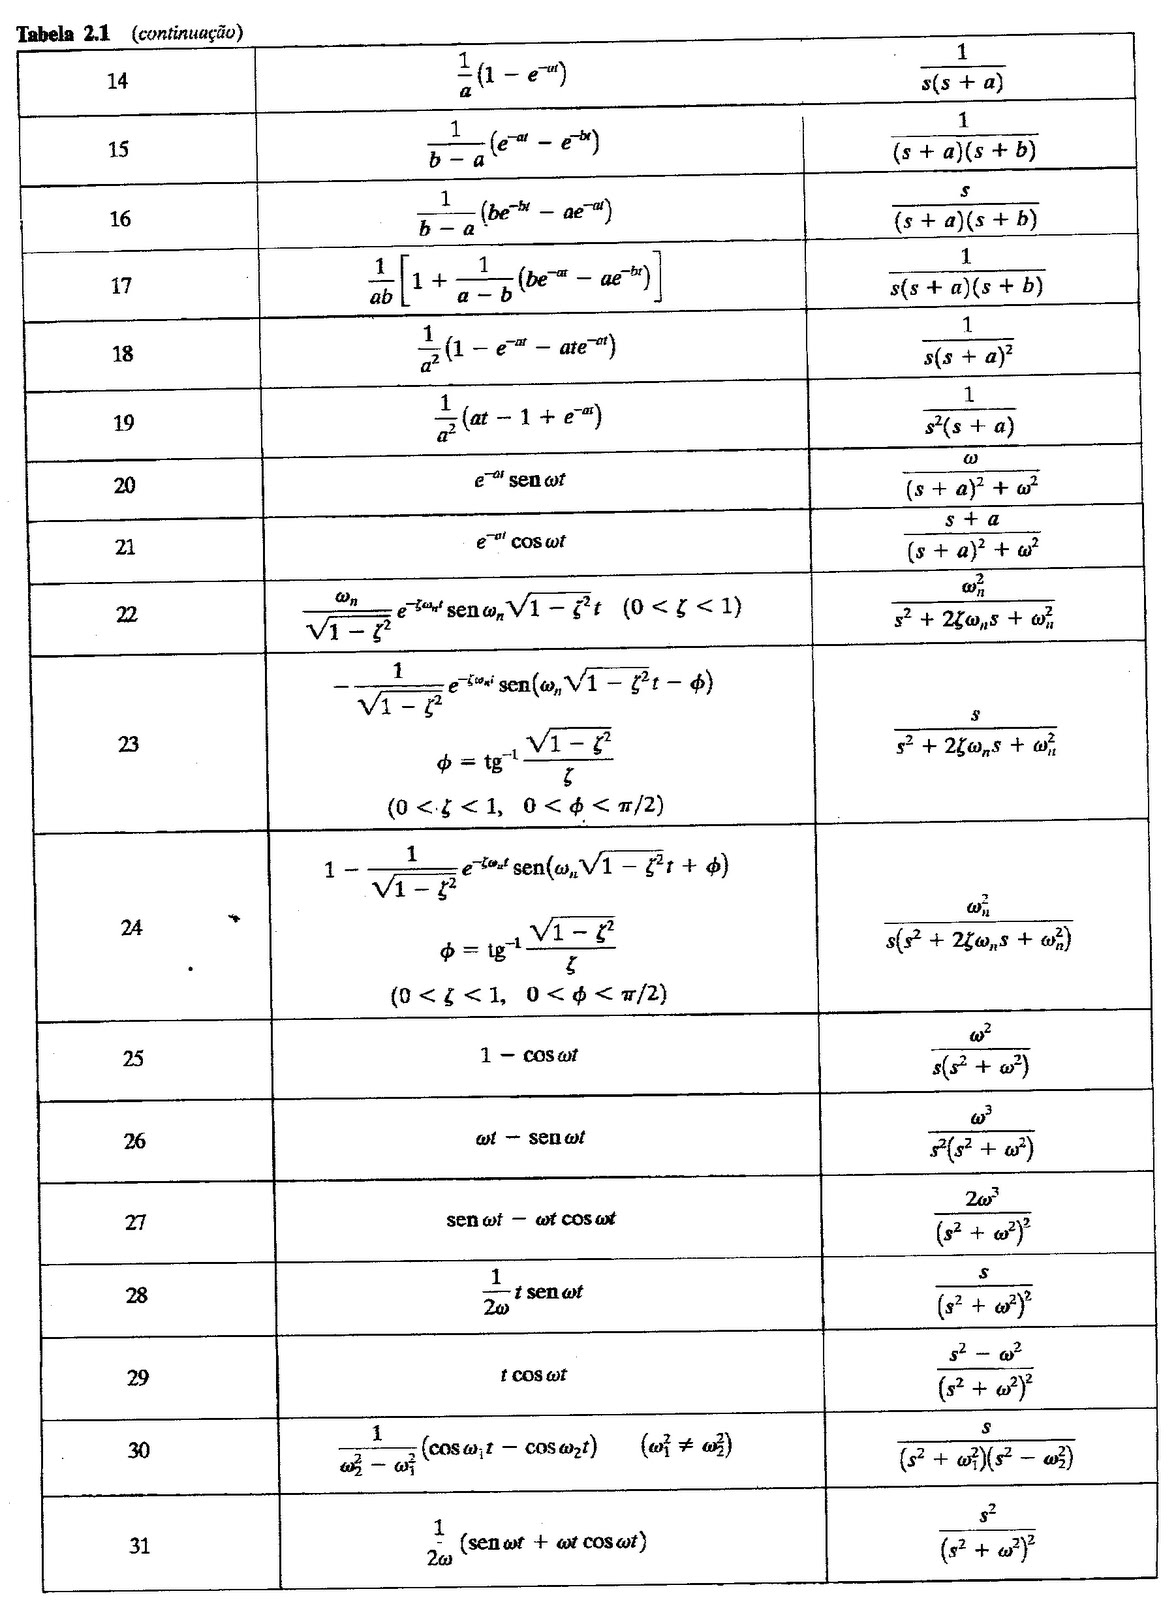 Tabela 2.1 (continuação)
14 $\frac{1}{a}(1 - e^{-at})$ $\frac{1}{s(s + a)}$
15 $\frac{1}{b - a}(e^{-at} - e^{-bt})$ $\frac{1}{(s + a)(s + b)}$
16 $\frac{1}{b - a}(be^{-bt} - ae^{-at})$ $\frac{s}{(s + a)(s + b)}$
17 $\frac{1}{ab}\left[1 + \frac{1}{a - b}(be^{-at} - ae^{-bt})\right]$ $\frac{1}{s(s + a)(s + b)}$
18 $\frac{1}{a^2}(1 - e^{-at} - ate^{-at})$ $\frac{1}{s(s + a)^2}$
19 $\frac{1}{a^2}(at - 1 + e^{-at})$ $\frac{1}{s^2(s + a)}$
20 $e^{-at} \text{sen}\, \omega t$ $\frac{\omega}{(s + a)^2 + \omega^2}$
21 $e^{-at} \cos \omega t$ $\frac{s + a}{(s + a)^2 + \omega^2}$
22 $\frac{\omega_n}{\sqrt{1 - \zeta^2}} e^{-\zeta\omega_n t} \text{sen}\, \omega_n \sqrt{1 - \zeta^2}\, t \quad (0 < \zeta < 1)$ $\frac{\omega_n^2}{s^2 + 2\zeta\omega_n s + \omega_n^2}$
23 $-\frac{1}{\sqrt{1 - \zeta^2}} e^{-\zeta\omega_n t} \text{sen}(\omega_n \sqrt{1 - \zeta^2}\, t - \phi)$ $\frac{s}{s^2 + 2\zeta\omega_n s + \omega_n^2}$
$\phi = \text{tg}^{-1} \frac{\sqrt{1 - \zeta^2}}{\zeta}$
$(0 < \zeta < 1, \quad 0 < \phi < \pi/2)$
24 $1 - \frac{1}{\sqrt{1 - \zeta^2}} e^{-\zeta\omega_n t} \text{sen}(\omega_n \sqrt{1 - \zeta^2}\, t + \phi)$ $\frac{\omega_n^2}{s(s^2 + 2\zeta\omega_n s + \omega_n^2)}$
$\phi = \text{tg}^{-1} \frac{\sqrt{1 - \zeta^2}}{\zeta}$
$(0 < \zeta < 1, \quad 0 < \phi < \pi/2)$
25 $1 - \cos \omega t$ $\frac{\omega^2}{s(s^2 + \omega^2)}$
26 $\omega t - \text{sen}\, \omega t$ $\frac{\omega^3}{s^2(s^2 + \omega^2)}$
27 $\text{sen}\, \omega t - \omega t \cos \omega t$ $\frac{2\omega^3}{(s^2 + \omega^2)^2}$
28 $\frac{1}{2\omega} t\, \text{sen}\, \omega t$ $\frac{s}{(s^2 + \omega^2)^2}$
29 $t \cos \omega t$ $\frac{s^2 - \omega^2}{(s^2 + \omega^2)^2}$
30 $\frac{1}{\omega_2^2 - \omega_1^2}(\cos \omega_1 t - \cos \omega_2 t) \quad (\omega_1^2 \neq \omega_2^2)$ $\frac{s}{(s^2 + \omega_1^2)(s^2 - \omega_2^2)}$
31 $\frac{1}{2\omega}(\text{sen}\, \omega t + \omega t \cos \omega t)$ $\frac{s^2}{(s^2 + \omega^2)^2}$